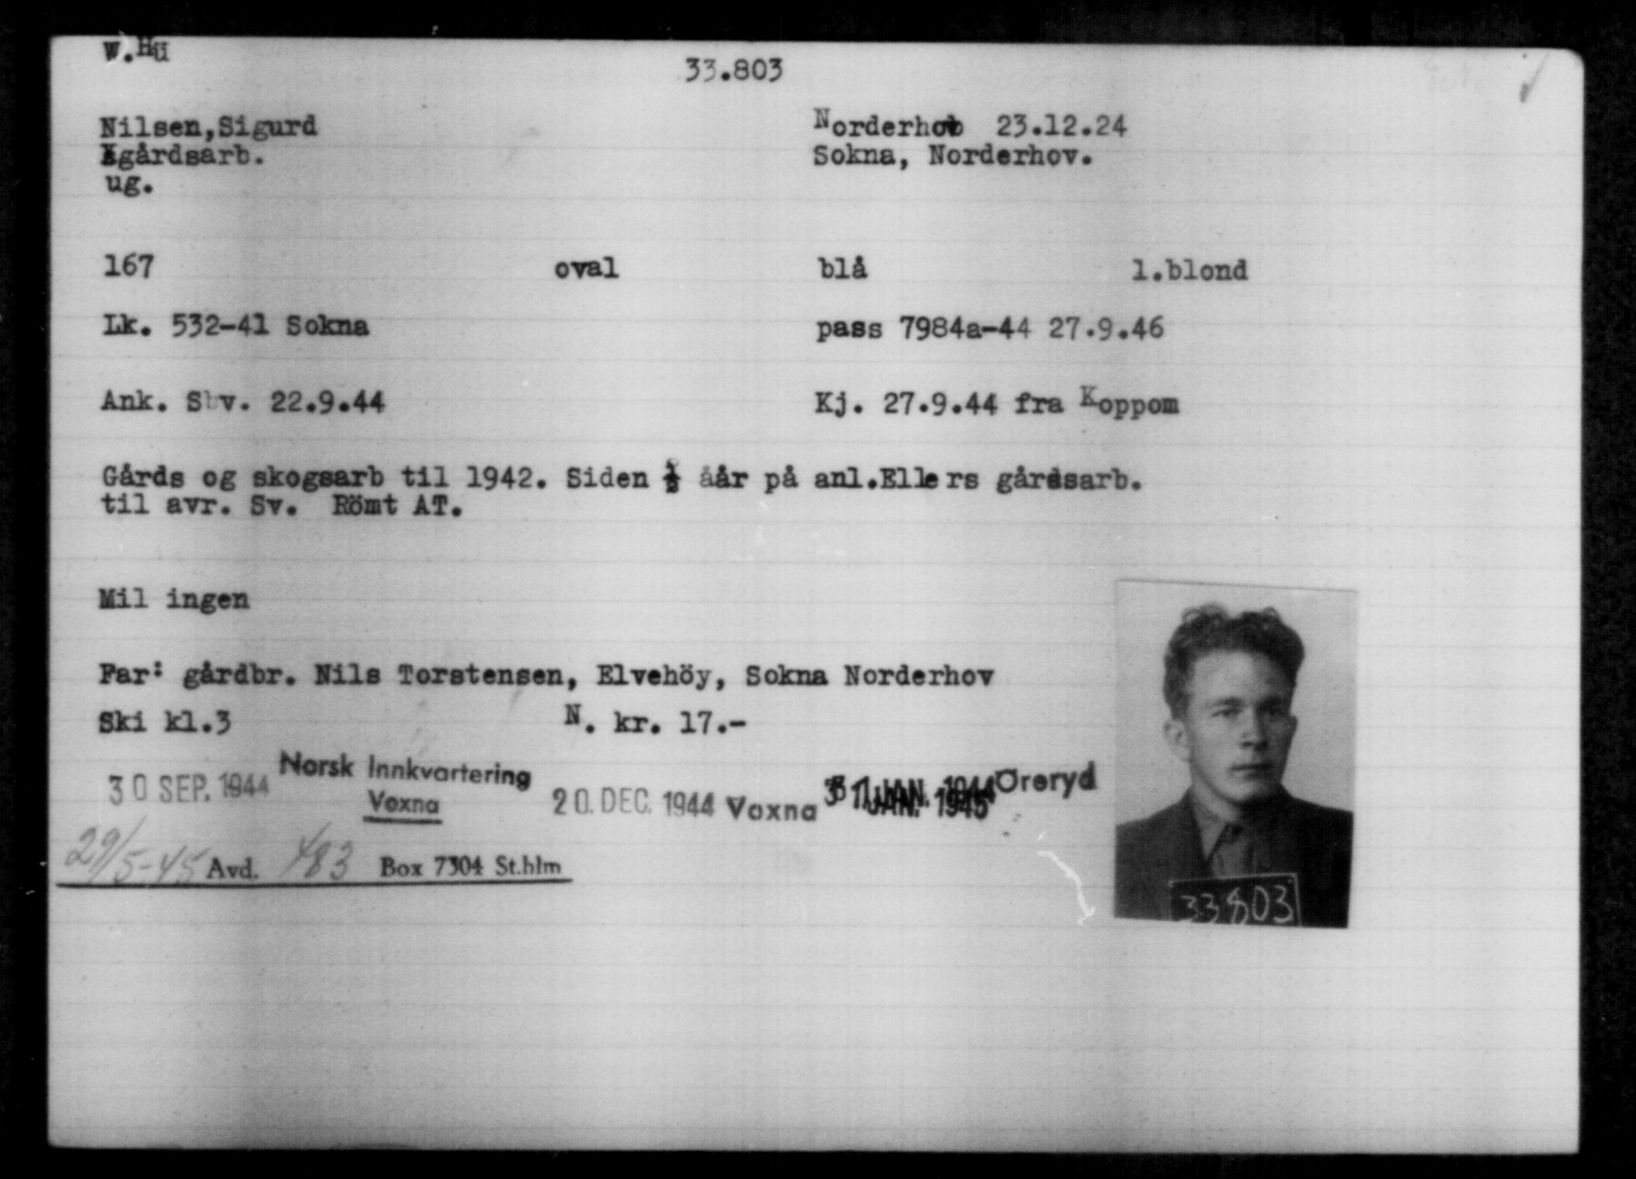 W.Hü
33.803
Nilsen,Sigurd Norderhob 23.12.24
gårdsarb. Sokna, Norderhov.
ug.
167 oval blå l.blond
Lk. 532-41 Sokna pass 7984a-44 27.9.46
Ank. Sv. 22.9.44 Kj. 27.9.44 fra Koppom
Gårds og skogsarb til 1942. Siden ½ åår på anl.Ellers gårdsarb.
til avr. Sv. Römt AT.
Mil ingen
Far: gårdbr. Nils Torstensen, Elvehöy, Sokna Norderhov
Ski kl.3 N. kr. 17.-
30 SEP. 1944 Norsk Innkvartering Voxna 20. DEC. 1944 Voxna JAN. 1945 Öreryd
29/5-45 Avd. 483 Box 7304 St.hlm
33803